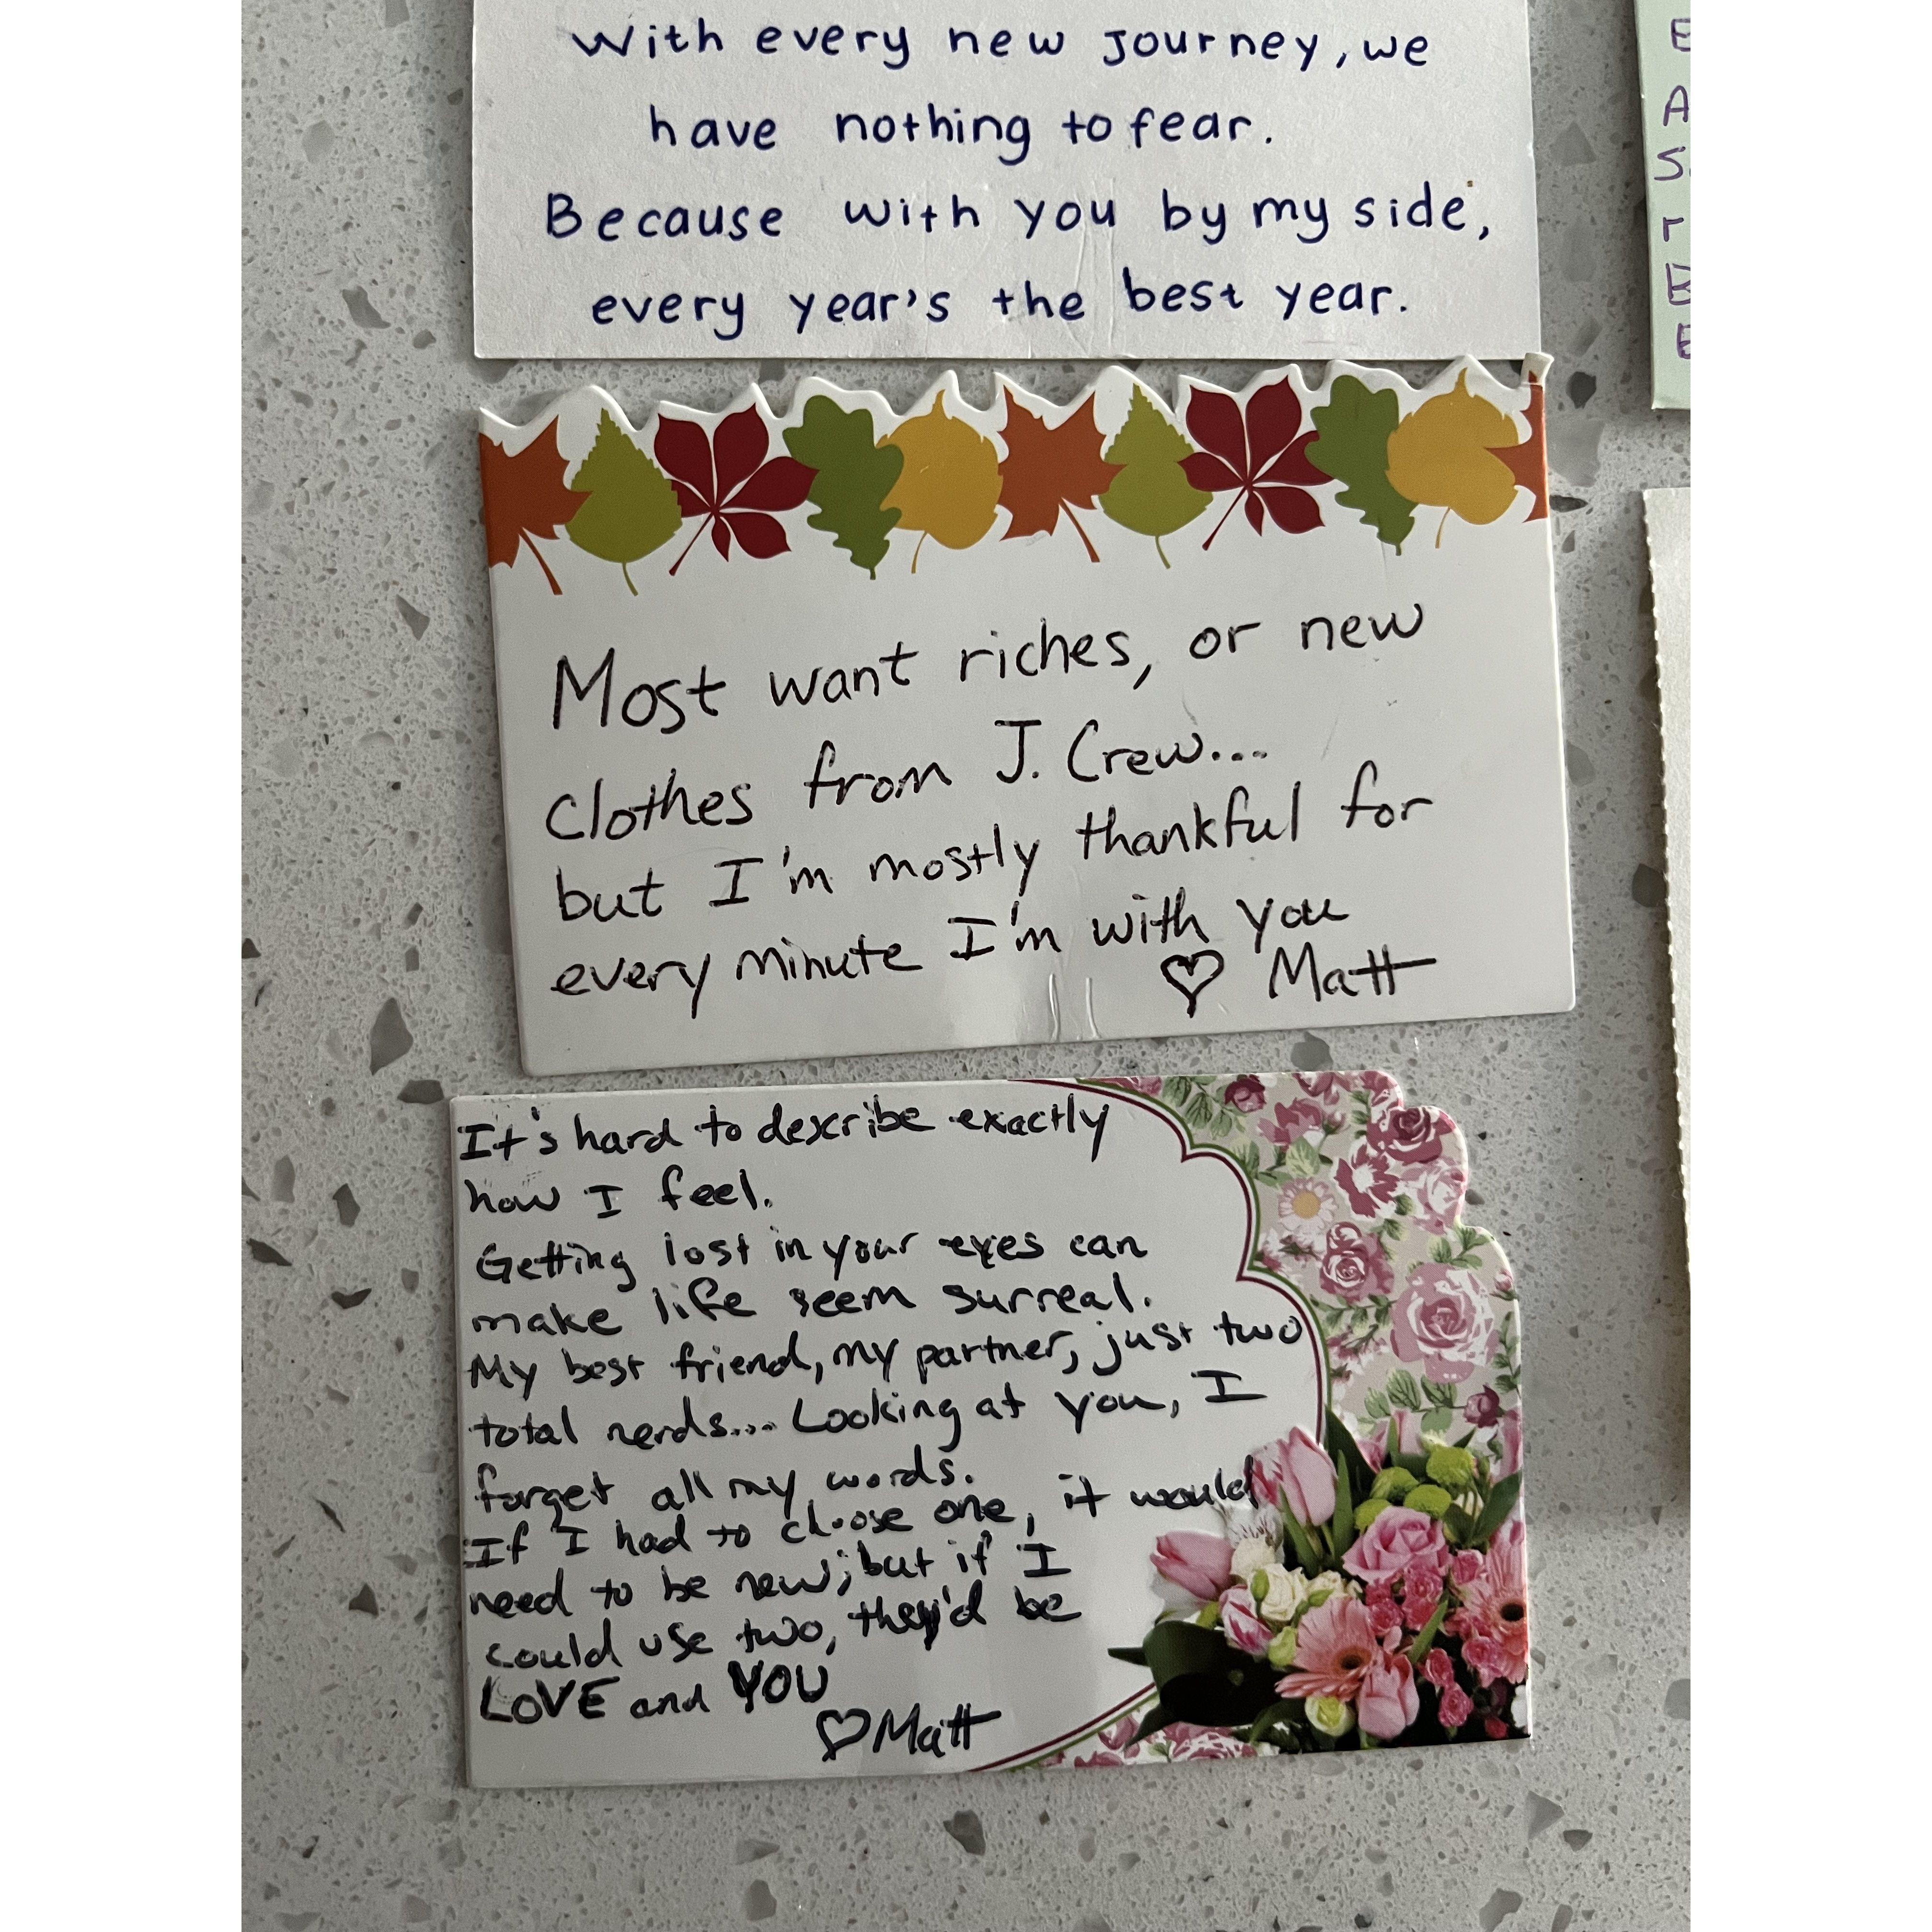 With every new Journey, we
have nothing to fear.
Because with you by my side,
every year's the best year.
E
A
S
r
E
E
Most want riches, or new
clothes from J. Crew...
but I'm mostly thankful for
every minute I'm with you
♡ Matt
It's hard to describe exactly
how I feel.
Getting lost in your eyes can
make life seem surreal.
My best friend, my partner, just two
total nerds.... Looking at you, I
forget all my words.
If I had to choose one, it would
need to be new; but if I
could use two, they'd be
LOVE and YOU
♡ Matt